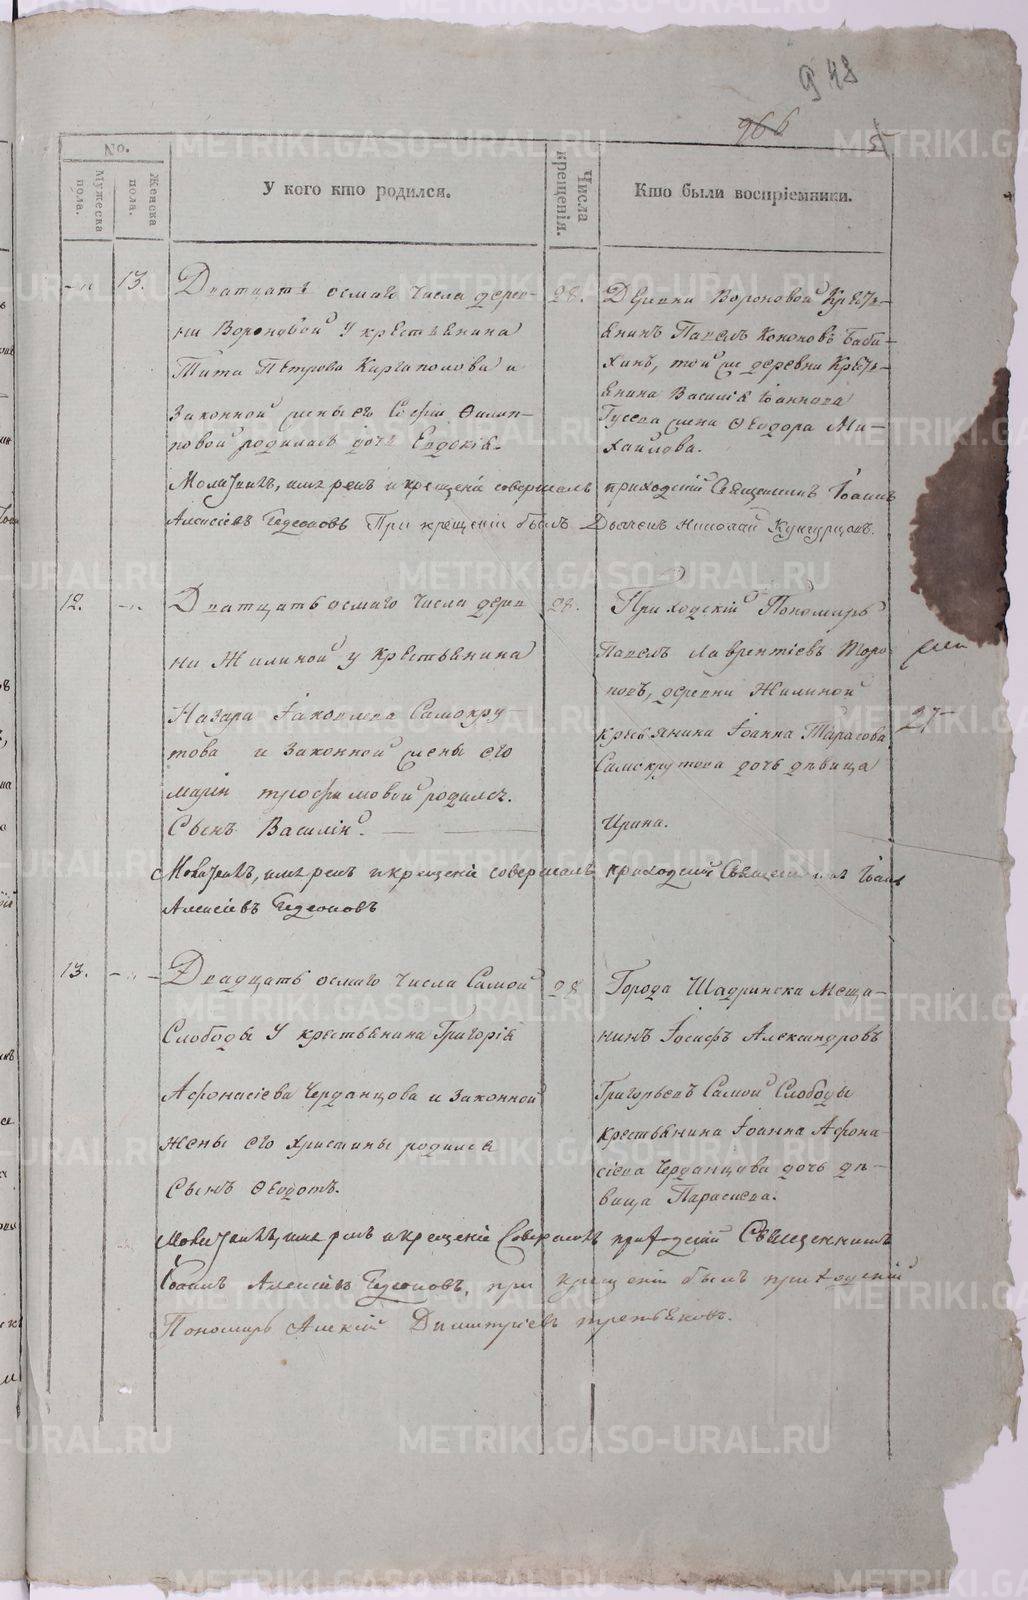 948
966
No.
Мужеска пола.
Женска пола.
У кого кто родился.
Числа крещенія.
Кто были воспріемники.
13.
Дватцать осмаго числа дерев-
ни Вороновой у крестьянина
Тита Петрова Каргаполова и
законной жены его Софіи Филип-
повой родилась дочь Евдокія.
28.
Деревни Вороновой Кресть-
янинъ Павелъ Кононовъ Баба-
хинъ, той же деревни Кресть-
янина Василія Іоаннова
Гусева жена Ѳеодора Ми-
хайлова.
Молитвилъ, имя реклъ и крещеніе совершалъ приходскій Священникъ Іоаннъ
Алексіевъ Гедеоновъ При крещеніи былъ Дьячекъ Николай Кунгурцовъ.
12.
Дватцать осмаго числа дерев
ни Жилиной у крестьянина
Назара Іаковлева Самокру
това и законной жены его
Маріи трофимовой родился
Сынъ Василій.
28.
Приходскій Пономарь
Павелъ Лаврентіевъ Торо-
повъ, деревни Жилиной
крестьянина Іоанна Тарасова
Самокрутова дочь дѣвица
Ирина.
27
Молитвилъ, имя реклъ и крещеніе совершалъ приходскій Священникъ Іоаннъ
Алексіевъ Гедеоновъ
13.
Двадцать осмаго числа Самой
Слободы у крестьянина Григорія
Афонасіева Черданцова и законной
жены его Христины родился
Сынъ Ѳеодотъ.
28
Города Шадринска Меща-
нинъ Іосифъ Александровъ
Григорьевъ Самой Слободы
крестьянина Іоанна Афона-
сіева Черданцова дочь дѣ-
вица Параскева.
Молитвилъ, имя реклъ и крещеніе Совершалъ приходскій Священникъ
Іоаннъ Алексіевъ Гедеоновъ, при крещеніи былъ приходскій
Пономарь Алексій Димитріевъ третьяковъ.
METRIKI.GASO-URAL.RU